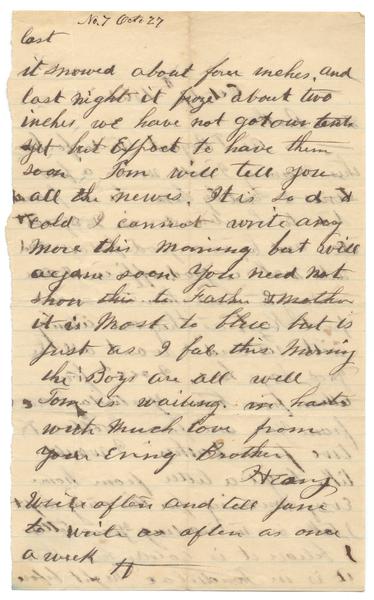 No. 7 Octo 27
last
it snowed about four inches. and
last night it froze about two
inches we have not got our tents
yet but Expect to have them
soon Tom will tell you
all the newes. It is so d d
cold I cannot write any
more this morning but will
agane soon You need not
show this to Father & mother
it is most to blue but is
just as I fel this morning
the Boys are all well
Tom is waiting. in haste
with much love from
your Brother
Write often and tell Jane
to write as often as once
a week H